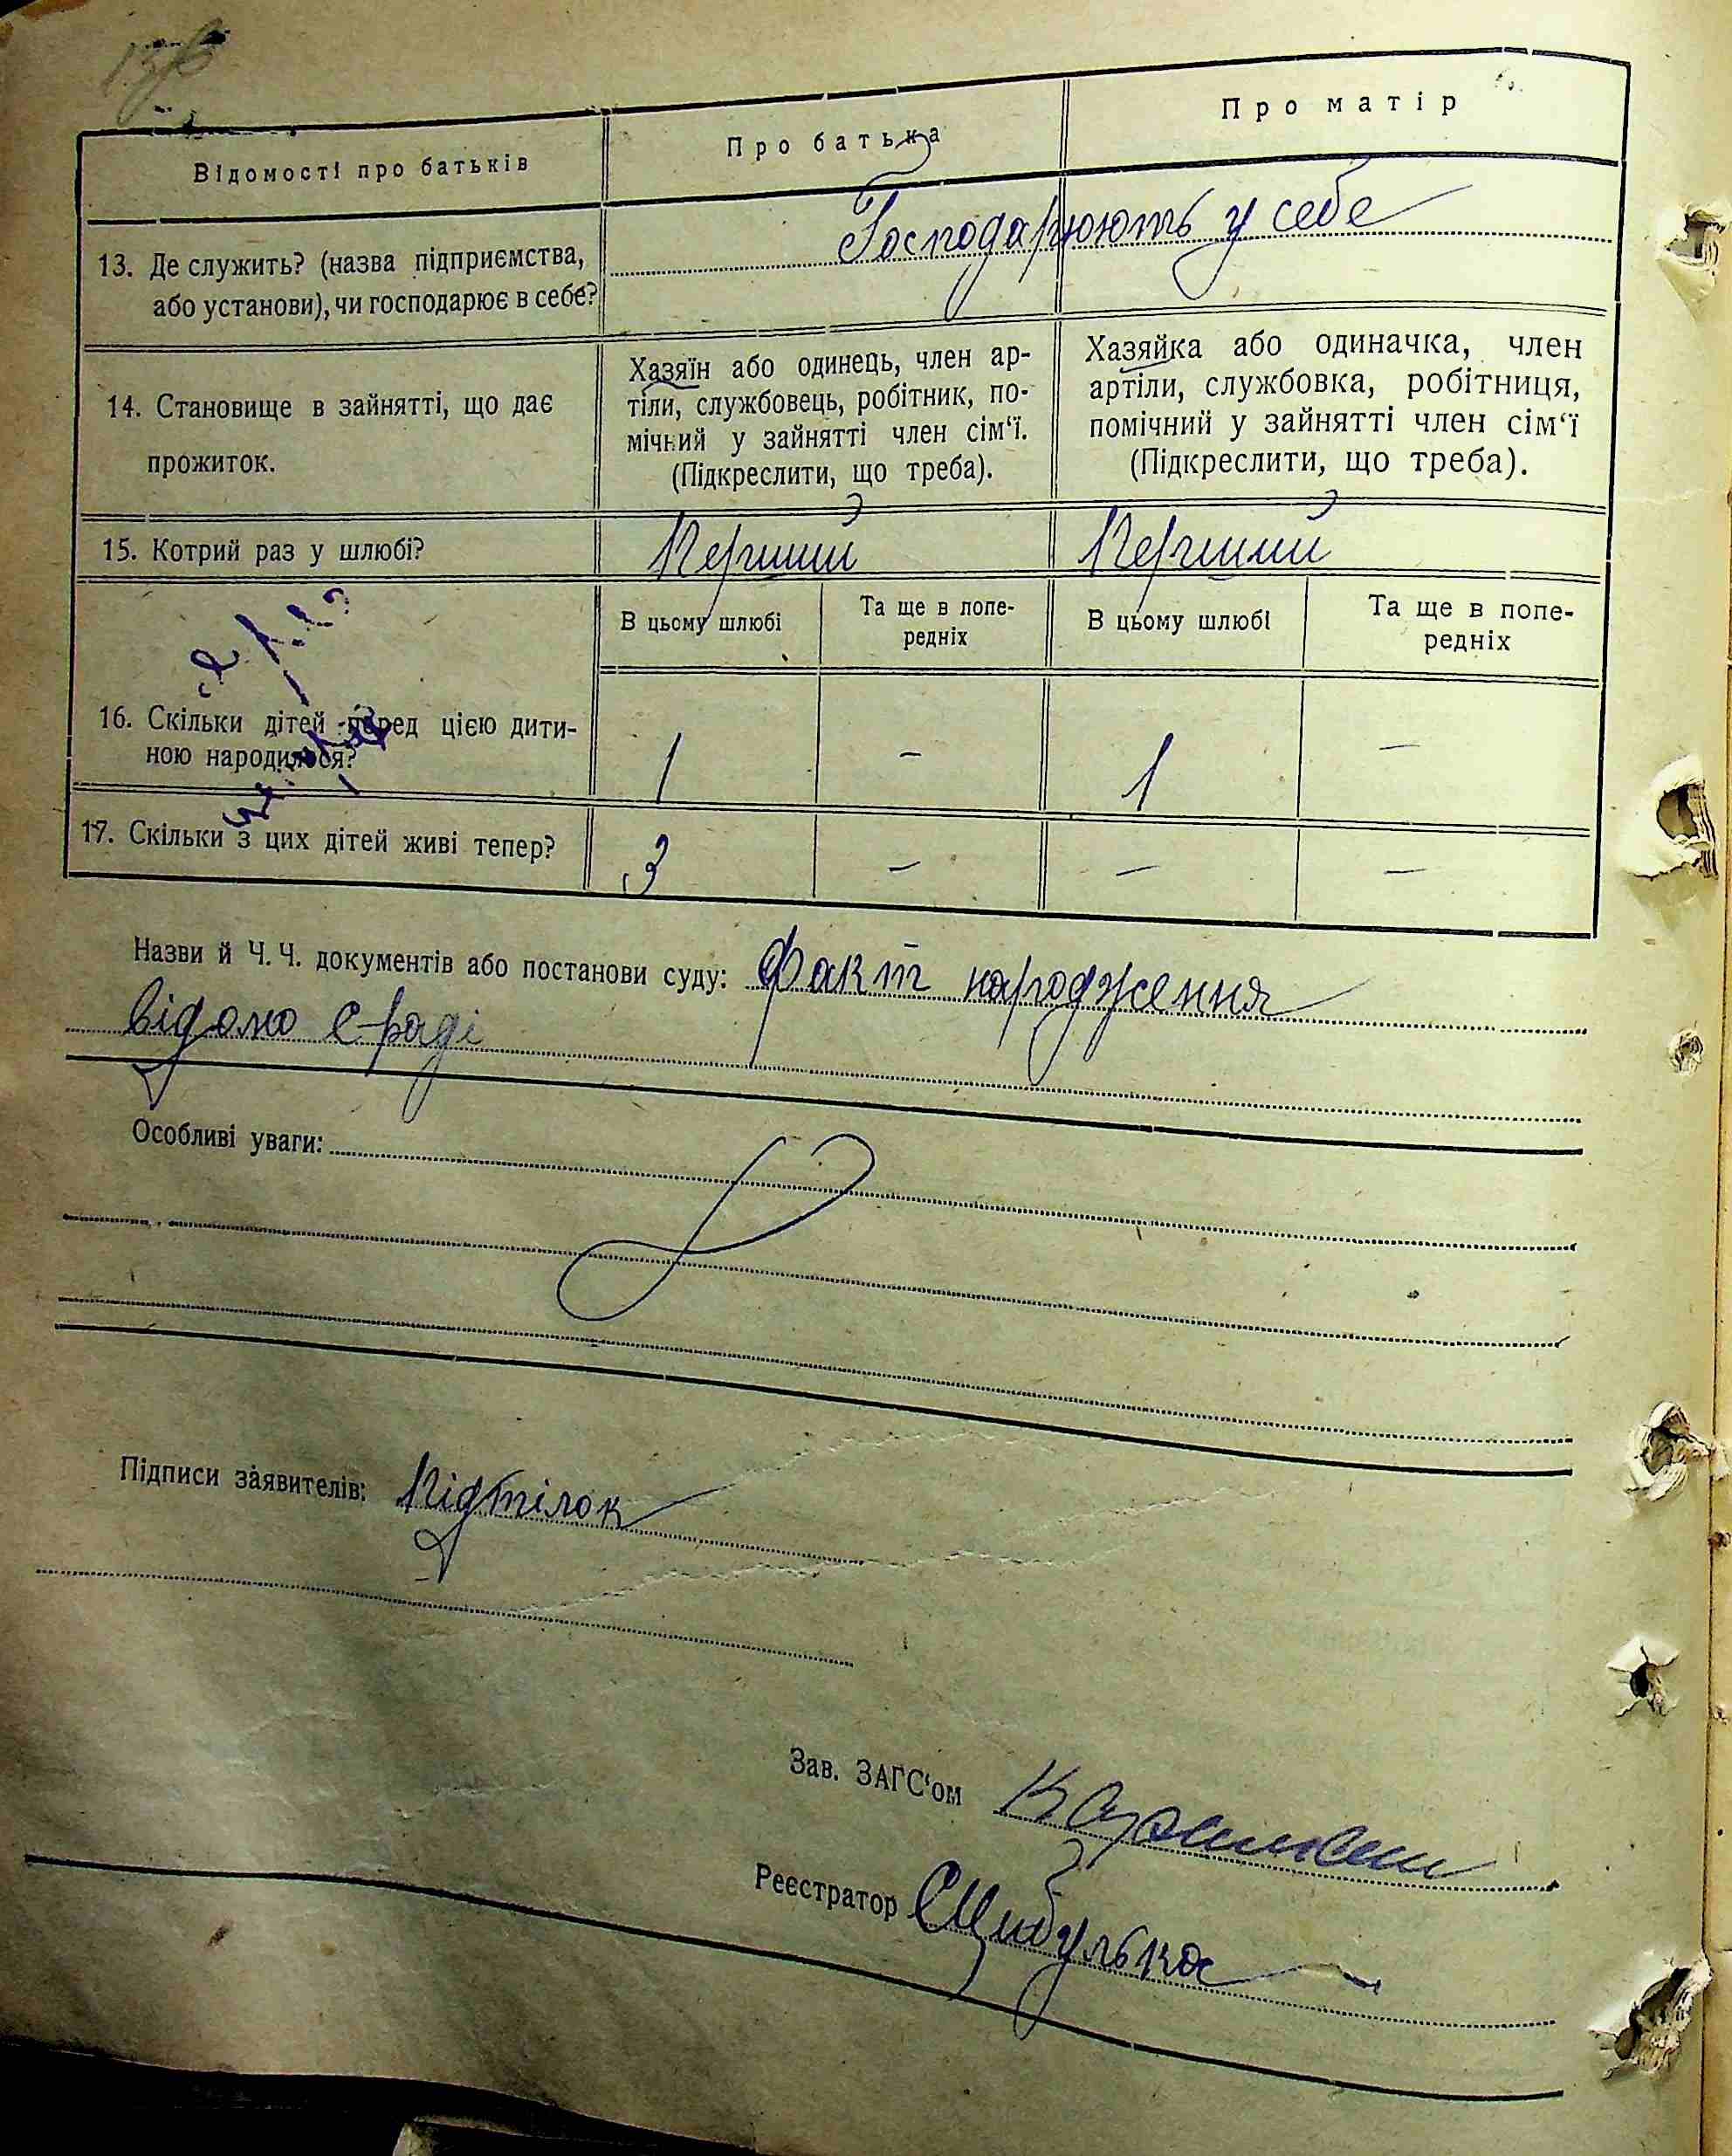 Відомості про батьків
Про батька
Про матір
13. Де служить? (назва підприємства,
або установи), чи господарює в себе?
Господарюють у себе
14. Становище в зайнятті, що дає
прожиток.
Хазяїн або одинець, член ар-
тіли, службовець, робітник, по-
мічний у зайнятті член сім'ї.
(Підкреслити, що треба).
Хазяйка або одиначка, член
артіли, службовка, робітниця,
помічний у зайнятті член сім'ї
(Підкреслити, що треба).
15. Котрий раз у шлюбі?
Перший
Перший
В цьому шлюбі
Та ще в попе-
редніх
В цьому шлюбі
Та ще в попе-
редніх
16. Скільки дітей перед цією дити-
ною народилося?
1
–
1
–
17. Скільки з цих дітей живі тепер?
3
–
–
–
Назви й Ч. Ч. документів або постанови суду: Факт народження
відомо с-раді
Особливі уваги:
Підписи заявителів: Підтілок
Зав. ЗАГС'ом
Реєстратор СЦибулька